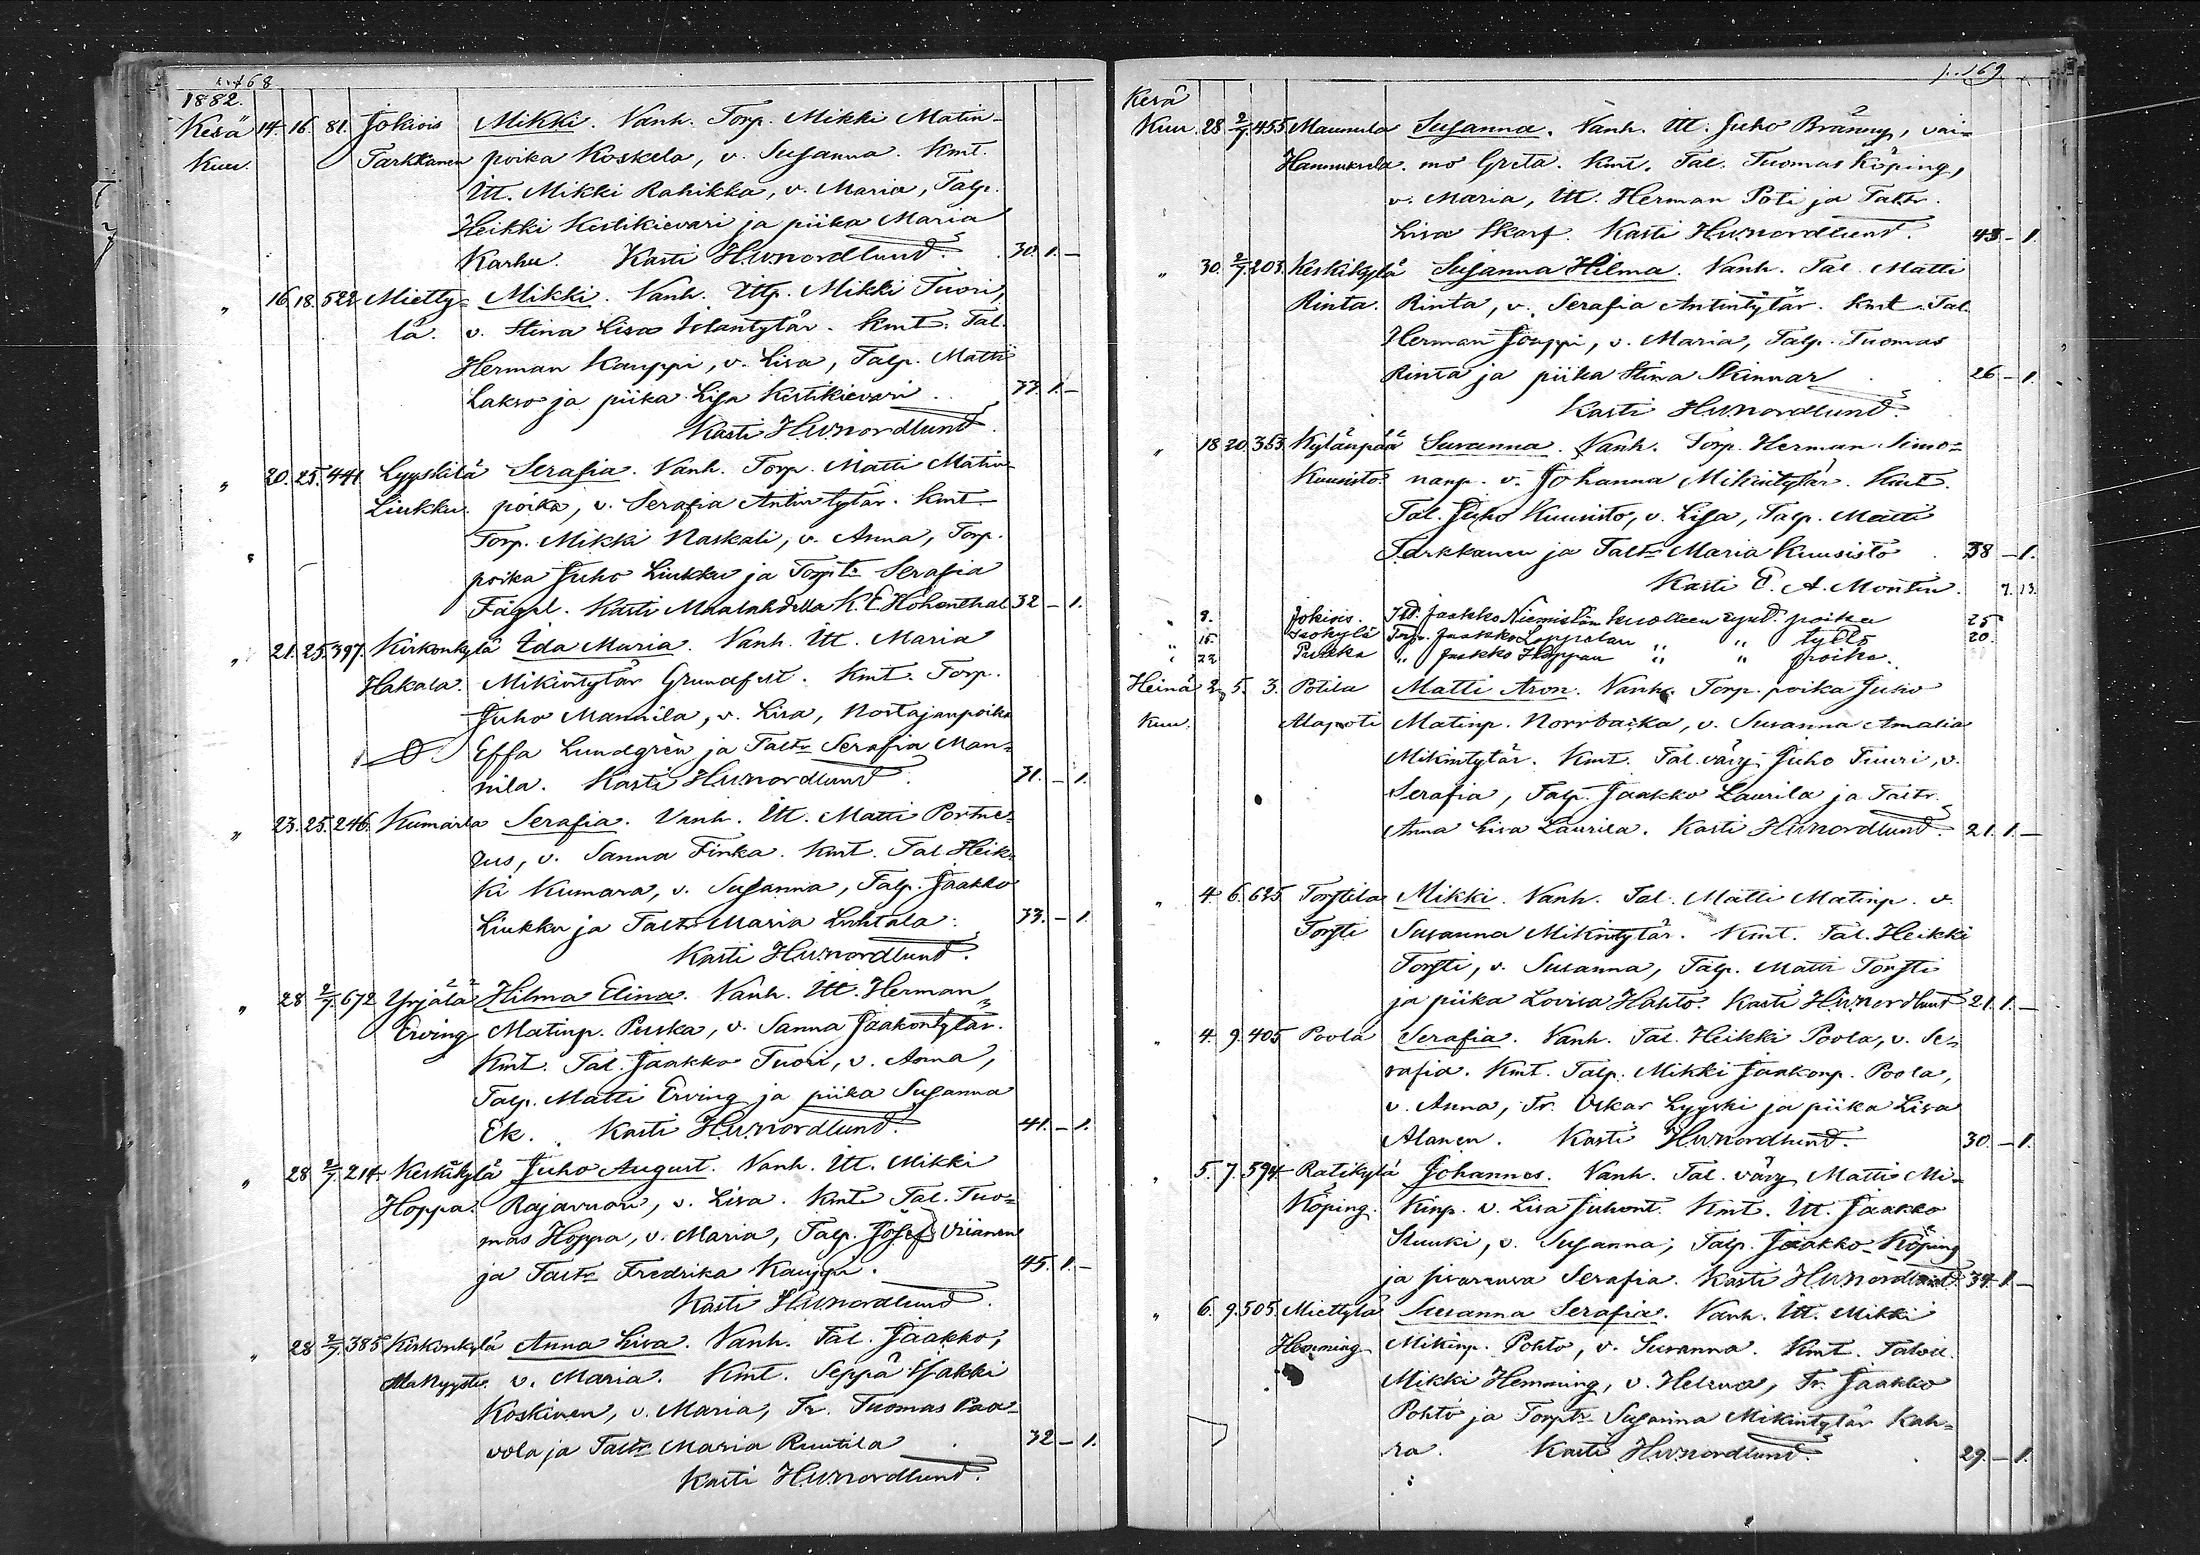 168
1882.
Kesä 14. 16. 81. Jokiois Mikki. Vanh. Torp. Mikki Matin-
Kuu. Tarkkanen poika Koskela, v. Susanna. Kmt.
Itt. Mikki Rahikka, v. Maria, Talp.
Heikki Kestikievari ja piika Maria
Karhu. Kasti H.W.Nordlund. 30. 1. –
" 16. 18. 522 Mietty= Mikki. Vanh. Ittp. Mikki Tuori,
lä. v. Stina Lisa Iolantytär. Kmt. Tal.
Herman Kauppi, v. Lisa, Talp. Matti
Lakso ja piika Lisa Kestikievari. 33. 1. –
Kasti H.W.Nordlund.
" 20. 25. 441 Lyyskilä Serafia. Vanh. Torp. Matti Matin-
Liukku. poika, v. Serafia Antintytär. Kmt.
Torp. Mikki Naskali, v. Anna, Torp.
poika Juho Liukku ja Torptr Serafia
Fägel. Kasti Maalahdella K. E. Hohenthal 32 – 1.
" 21. 25. 397. Kirkonkylä Ida Maria. Vanh. Itt. Maria
Hakala. Mikintytär Grundfelt. Kmt. Torp.
Juho Mannila, v. Lisa, Nostajanpoika
Effa Lundgrén ja Taltr Serafia Man=
nila. Kasti H.W.Nordlund. 31. – 1.
" 23. 25. 246. Kumara Serafia. Vanh. Itt. Matti Portne-
rus, v. Sanna Finka. Kmt. Tal. Heik-
ki Kumara, v. Susanna, Talp. Jaakko
Liukku ja Taltr Maria Luhtala. 33. – 1.
Kasti H.W.Nordlund.
" 28 2/7. 672 Yrjälä Hilma Elina. Vanh. Itt. Herman
Erving Matinp. Puska, v. Sanna Jaakontytär.
Kmt. Tal. Jaakko Tuori, v. Anna,
Talp. Matti Erving ja piika Susanna
Ek. Kasti H.W.Nordlund. 41. – 1.
" 28 2/7. 214 Keskikylä Juho August. Vanh. Itt. Mikki
Hoppa. Rajavuori, v. Lisa. Kmt. Tal. Tuo=
mas Hoppa, v. Maria, Talp. Josef
ja Taltr Fredrika Kauppi. 45. 1. –
Kasti H.W.Nordlund.
" 28 2/7. 385 Kirkonkylä Anna Lisa. Vanh. Tal. Jaakko,
v. Maria. Kmt. Seppä Jakki
Koskinen, v. Maria, Tr. Tuomas Paa-
vola ja Taltr Maria Ruutila. 32 – 1.
Kasti H.W.Nordlund.
169
Kesä
Kuu. 28 2/7. 455 Maunula Susanna. Vanh. Itt. Juho Bränny, vai=
Hannuksela. mo Greta. Kmt. Tal. Tuomas Köping,
v. Maria, Itt. Herman Poti ja Taltr.
Lisa Skarf. Kasti H.W.Nordlund. 43 – 1.
" 30. 2/7. 203. Keskikylä Susanna Hilma. Vanh. Tal. Matti
Rinta. Rinta, v. Serafia Antintytär. Kmt. Tal.
Herman Jouppi, v. Maria, Talp. Tuomas
Rinta ja piika Stina Skinnar. 26 – 1.
Kasti H.W.Nordlund.
" 18 20. 353 Kylänpää Susanna. Vanh. Torp. Herman Simo=
Kuusisto. nanp. v. Johanna Mikintytär. Kmt.
Tal. Juho Kuusisto, v. Lisa, Talp. Matti
Tarkkanen ja Taltr Maria Kuusisto. 38 – 1.
Kasti E. A. Montin. 7. 13.
" 8. Jokiois. Itt. Jaakko Niemistön kuolleen synt. poika 25
" 15. Isokylä Torp. Jaakko Loppolan " " tyttö 20.
" 22 Puska " Jaakko " " poika.
Heinä 2. 5. 3. Potila Matti Aron. Vanh. Torp. poika Juho
Kuu. Alapoti Matinp. Norrbacka, v. Susanna Amalia
Mikintytär. Kmt. Tal. värj. Juho Tuuri, v.
Serafia, Talp. Jaakko Laurila ja Taltr.
Anna Lisa Laurila. Kasti H.W.Nordlund. 21. 1. –
" 4 6. 625 Torstila Mikki. Vanh. Tal. Matti Matinp. v.
Torsti Susanna Mikintytär. Kmt. Tal. Heikki
Torsti, v. Susanna, Talp. Matti Torsti
ja piika Lovisa Hahto. Kasti H.W.Nordlund 21. 1. –
" 4. 9. 405 Poola Serafia. Vanh. Tal. Heikki Poola, v. Se=
rafia. Kmt. Talp. Mikki Jaakonp. Poola,
v. Anna, Tr. Oskar Lyyski ja piika Lisa
Alanen. Kasti H.W.Nordlund. 30. – 1.
" 5. 7. 594 Ratikylä Johannes. Vanh. Tal. värj. Matti Mi-
Köping. kinp. v. Lisa Juhont. Kmt. Itt. Jaakko
Stuuki, v. Susanna; Talp. Jaakko Köping
ja sisarensa Serafia. Kasti H.W.Nordlund. 34 1. –
" 6. 9. 505. Miettylä Susanna Serafia. Vanh. Itt. Mikki
Hemming Mikinp. Pohto, v. Susanna. Kmt.
Mikki Hemming, v. Helena, Tr. Jaakko
Pohto ja Torptr Susanna Mikintytär Kah=
ra. Kasti H.W.Nordlund. 29. – 1.